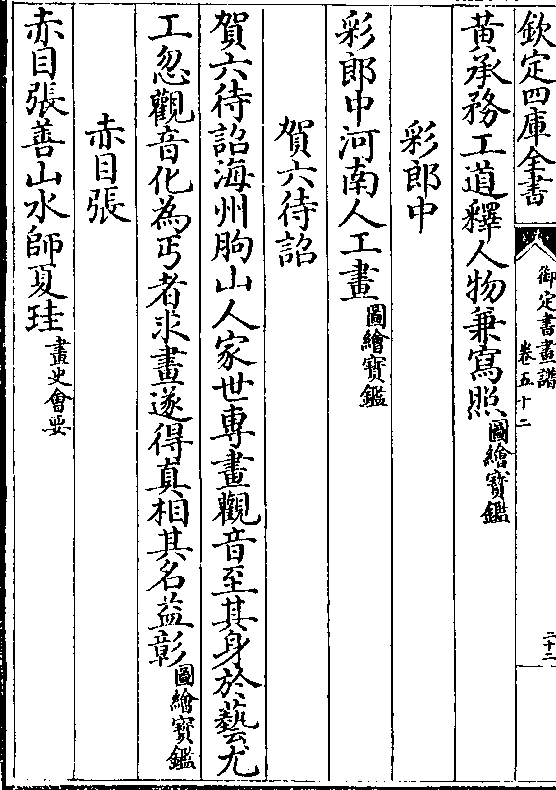 欽定四庫全書
御定書畫譜
卷五十二
二十二
黄承務工道釋人物兼寫照圖繪寳鑑
彩郎中
彩郎中河南人工畫圖繪寳鑑
賀六待詔
賀六待詔海州朐山人家世専畫觀音至其身於藝尤
工忽觀音化為丐者求畫遂得真相其名益彰圖繪寳鑑
赤目張
赤目張善山水師夏珪畫史會要